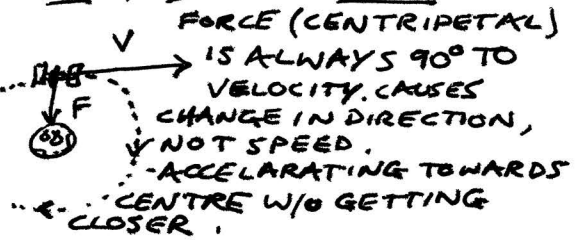 FORCE (CENTRIPETAL)
V
IS ALWAYS 90° TO
VELOCITY. CAUSES
F
CHANGE IN DIRECTION,
NOT SPEED.
-ACCELARATING TOWARDS
CENTRE W/O GETTING
CLOSER.